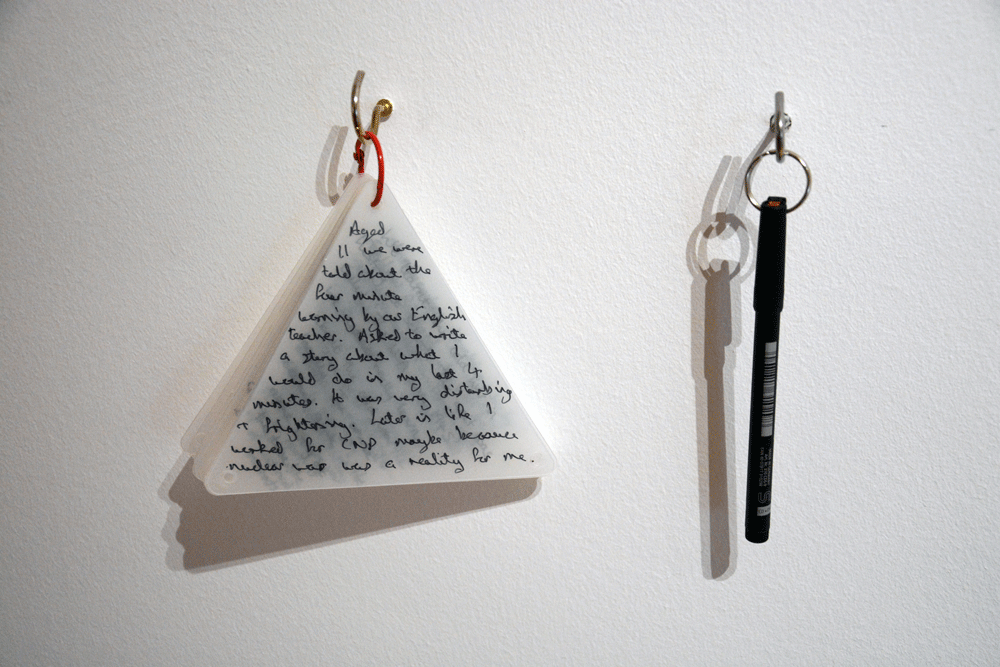 Aged
11 we were
told about the
four minute
warning by our English
teacher. Asked to write
a story about what I
would do in my last 4
minutes. It was very disturbing
+ frightening. Later in life I
worked for CND maybe because
nuclear war was a reality for me.